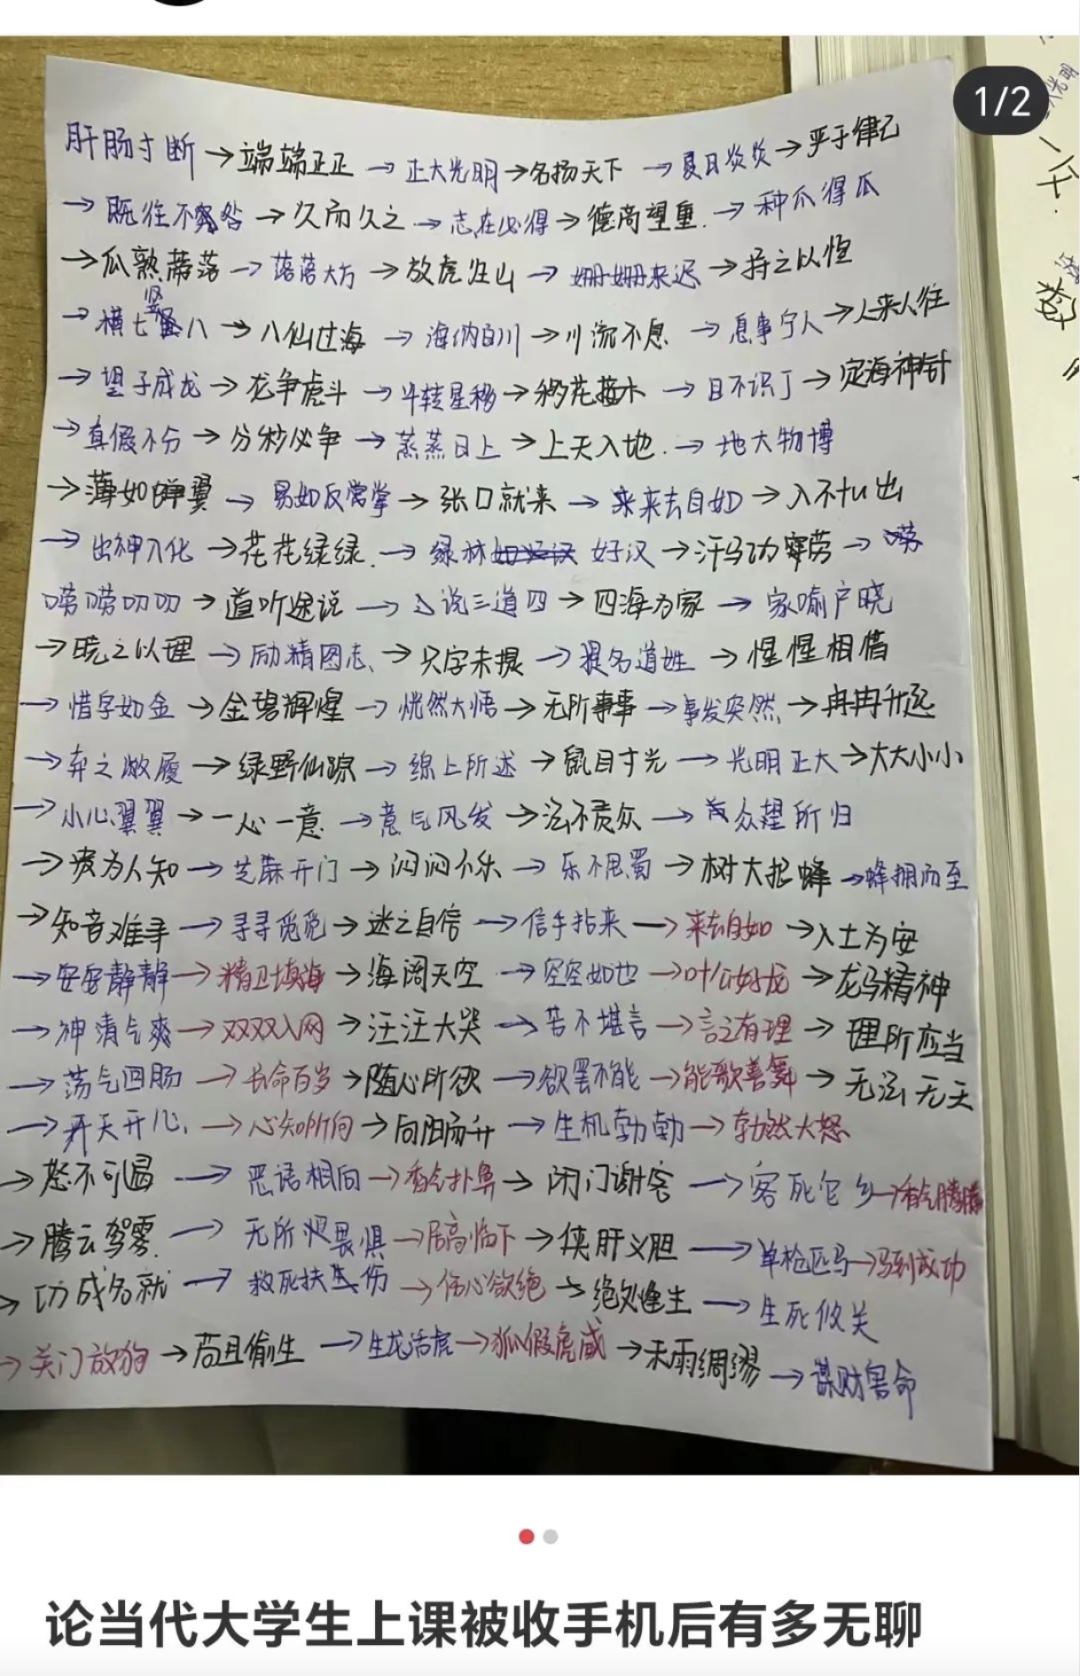 1/2
肝肠寸断→端端正正→正大光明→名扬天下→夏日炎炎→严于律己
→既往不咎→久而久之→志在必得→德高望重.→种瓜得瓜
→瓜熟蒂落→落落大方→放虎归山→姗姗来迟→持之以恒
→横七竖八→八仙过海→海纳百川→川流不息→息事宁人→人来人往
→望子成龙→龙争虎斗→斗转星移→移花接木→目不识丁→定海神针
→真假不分→分秒必争→蒸蒸日上→上天入地.→地大物博
→薄如蝉翼→易如反掌→张口就来→来去自如→入不付出
→出神入化→花花绿绿.→绿林好汉→汗马功劳→唠
唠唠叨叨→道听途说→说三道四→四海为家→家喻户晓
→晓之以理→励精图志、→只字未提→提名道姓→惺惺相惜
→惜字如金→金碧辉煌→恍然大悟→无所事事→事发突然→冉冉升起
→弃之敝履→绿野仙踪→综上所述→鼠目寸光→光明正大→大大小小
→小心翼翼→一心一意→意气风发→法不责众→众望所归
→广为人知→芝麻开门→闷闷不乐→乐不思蜀→树大招蜂→蜂拥而至
→知音难寻→寻寻觅觅→迷之自信→信手拈来→来去自如→入土为安
→安安静静→精卫填海→海阔天空→空空如也→叶公好龙→龙马精神
→神清气爽→双双入网→汪汪大哭→苦不堪言→言之有理→理所应当
→荡气回肠→长命百岁→随心所欲→欲罢不能→能歌善舞→无法无天
→开天开心→心知所向→向阳而升→生机勃勃→勃然大怒
→怒不可遏→恶语相向→香气扑鼻→闭门谢客→客死它乡→香气腾腾
→腾云驾雾.→无所畏惧→居高临下→侠肝义胆→单枪匹马→马到成功
→功成名就→救死扶伤→伤心欲绝→绝处逢生→生死攸关
→关门放狗→苟且偷生→生龙活虎→狐假虎威→未雨绸缪→谋财害命
论当代大学生上课被收手机后有多无聊